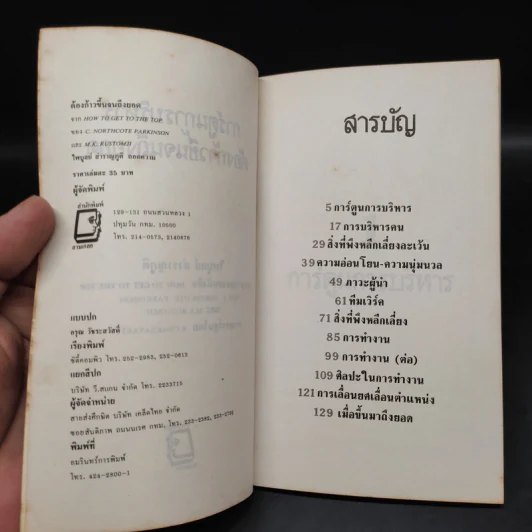 ต้องก้าวขึ้นจนถึงยอด
จาก HOW TO GET TO THE TOP
ของ C. NORTHCOTE PARKINSON
และ M.K. RUSTOMJI
ไพบูลย์ สำราญภูติ ถอดความ
ราคาเล่มละ 35 บาท
ผู้จัดพิมพ์
สำนักพิมพ์
สามเกลอ
129-131 ถนนสวนหลวง 1
ปทุมวัน กทม. 10500
โทร. 214-0575, 2140876
แบบปก
อรุณ วัชระสวัสดิ์
เรียงพิมพ์
ซิตี้คอมพิว โทร. 252-2963, 252-0613
แยกสีปก
บริษัท วี.สแกน จำกัด โทร. 2233715
ผู้จัดจำหน่าย
สายส่งศึกษิต บริษัท เคล็ดไทย จำกัด
ซอยสันติภาพ ถนนนเรศ กทม. โทร. 233-2382,
พิมพ์ที่
อมรินทร์การพิมพ์
โทร. 424-2800-1
สารบัญ
5 การ์ตูนการบริหาร
17 การบริหารคน
29 สิ่งที่พึงหลีกเลี่ยงละเว้น
39 ความอ่อนโยน-ความนุ่มนวล
49 ภาวะผู้นำ
61 ทีมเวิร์ค
71 สิ่งที่พึงหลีกเลี่ยง
85 การทำงาน
99 การทำงาน (ต่อ)
109 ศิลปะในการทำงาน
121 การเลื่อนยศเลื่อนตำแหน่ง
129 เมื่อขึ้นมาถึงยอด